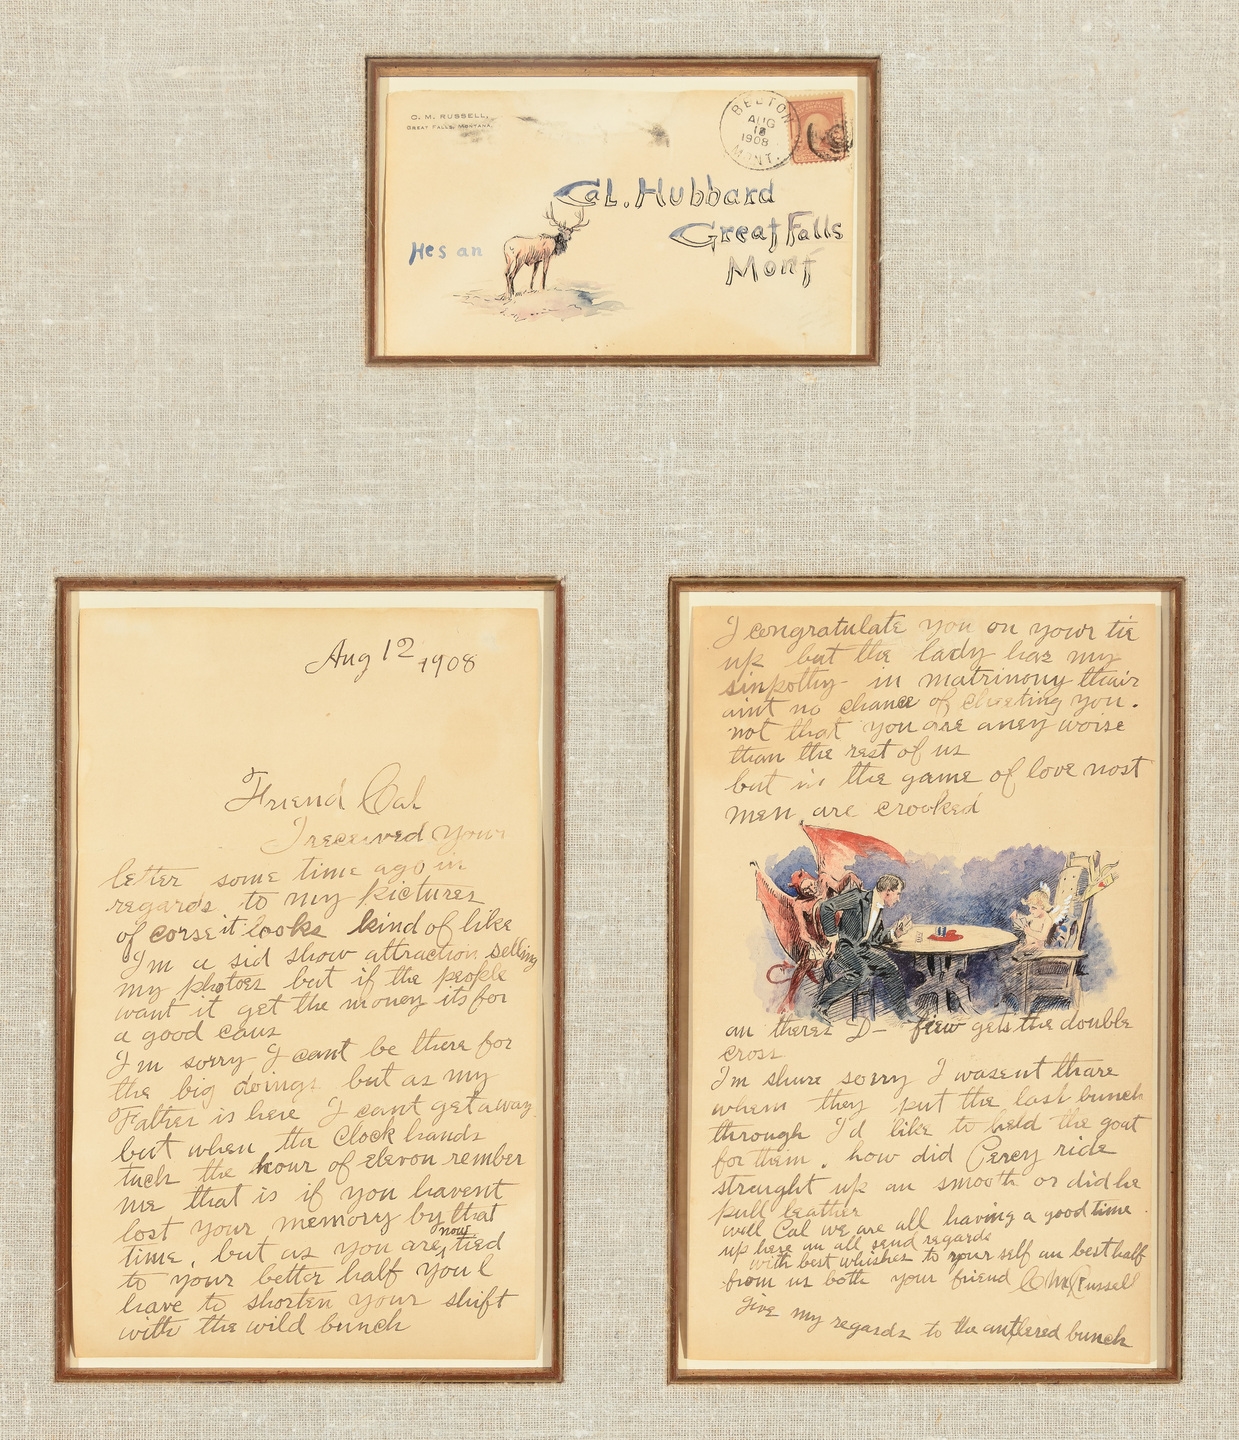 C. M. RUSSELL,
GREAT FALLS, MONTANA.
BELTON
AUG
12
1908
MONT.
Cal. Hubbard
Great Falls
Mont
Hes an
Aug 12 1908
Friend Cal
I received your
letter some time ago in
regards to my pictures
of corse it looks kind of like
Im a sid show attraction selling
my photoes but if the people
want it get the money its for
a good caus
I'm sorry I cant be there for
the big doings but as my
Father is here I cant get away
but when the clock hands
tuch the hour of elevon rember
me that is if you havent
lost your memory by that
time, but as you are now tied
to your better half youl
have to shorten your shift
with the wild bunch
I congratulate you on your tie
up but the lady has my
sinpothy - in matrimony thair
aint no chance of cheeting you.
not that you are aney worse
than the rest of us
but in the game of love most
men are crooked
an theres D- fiew gets the double
cross
I'm shure sorry I wasent thare
when they put the last bunch
through I'd like to held the goat
for them. how did Percy ride
straught up an smooth or did he
pull leather
well Cal we are all having a good time
up here an all send regards
with best whishes to your self an best half
from us both your friend CM Russell
Give my regards to the antlered bunch